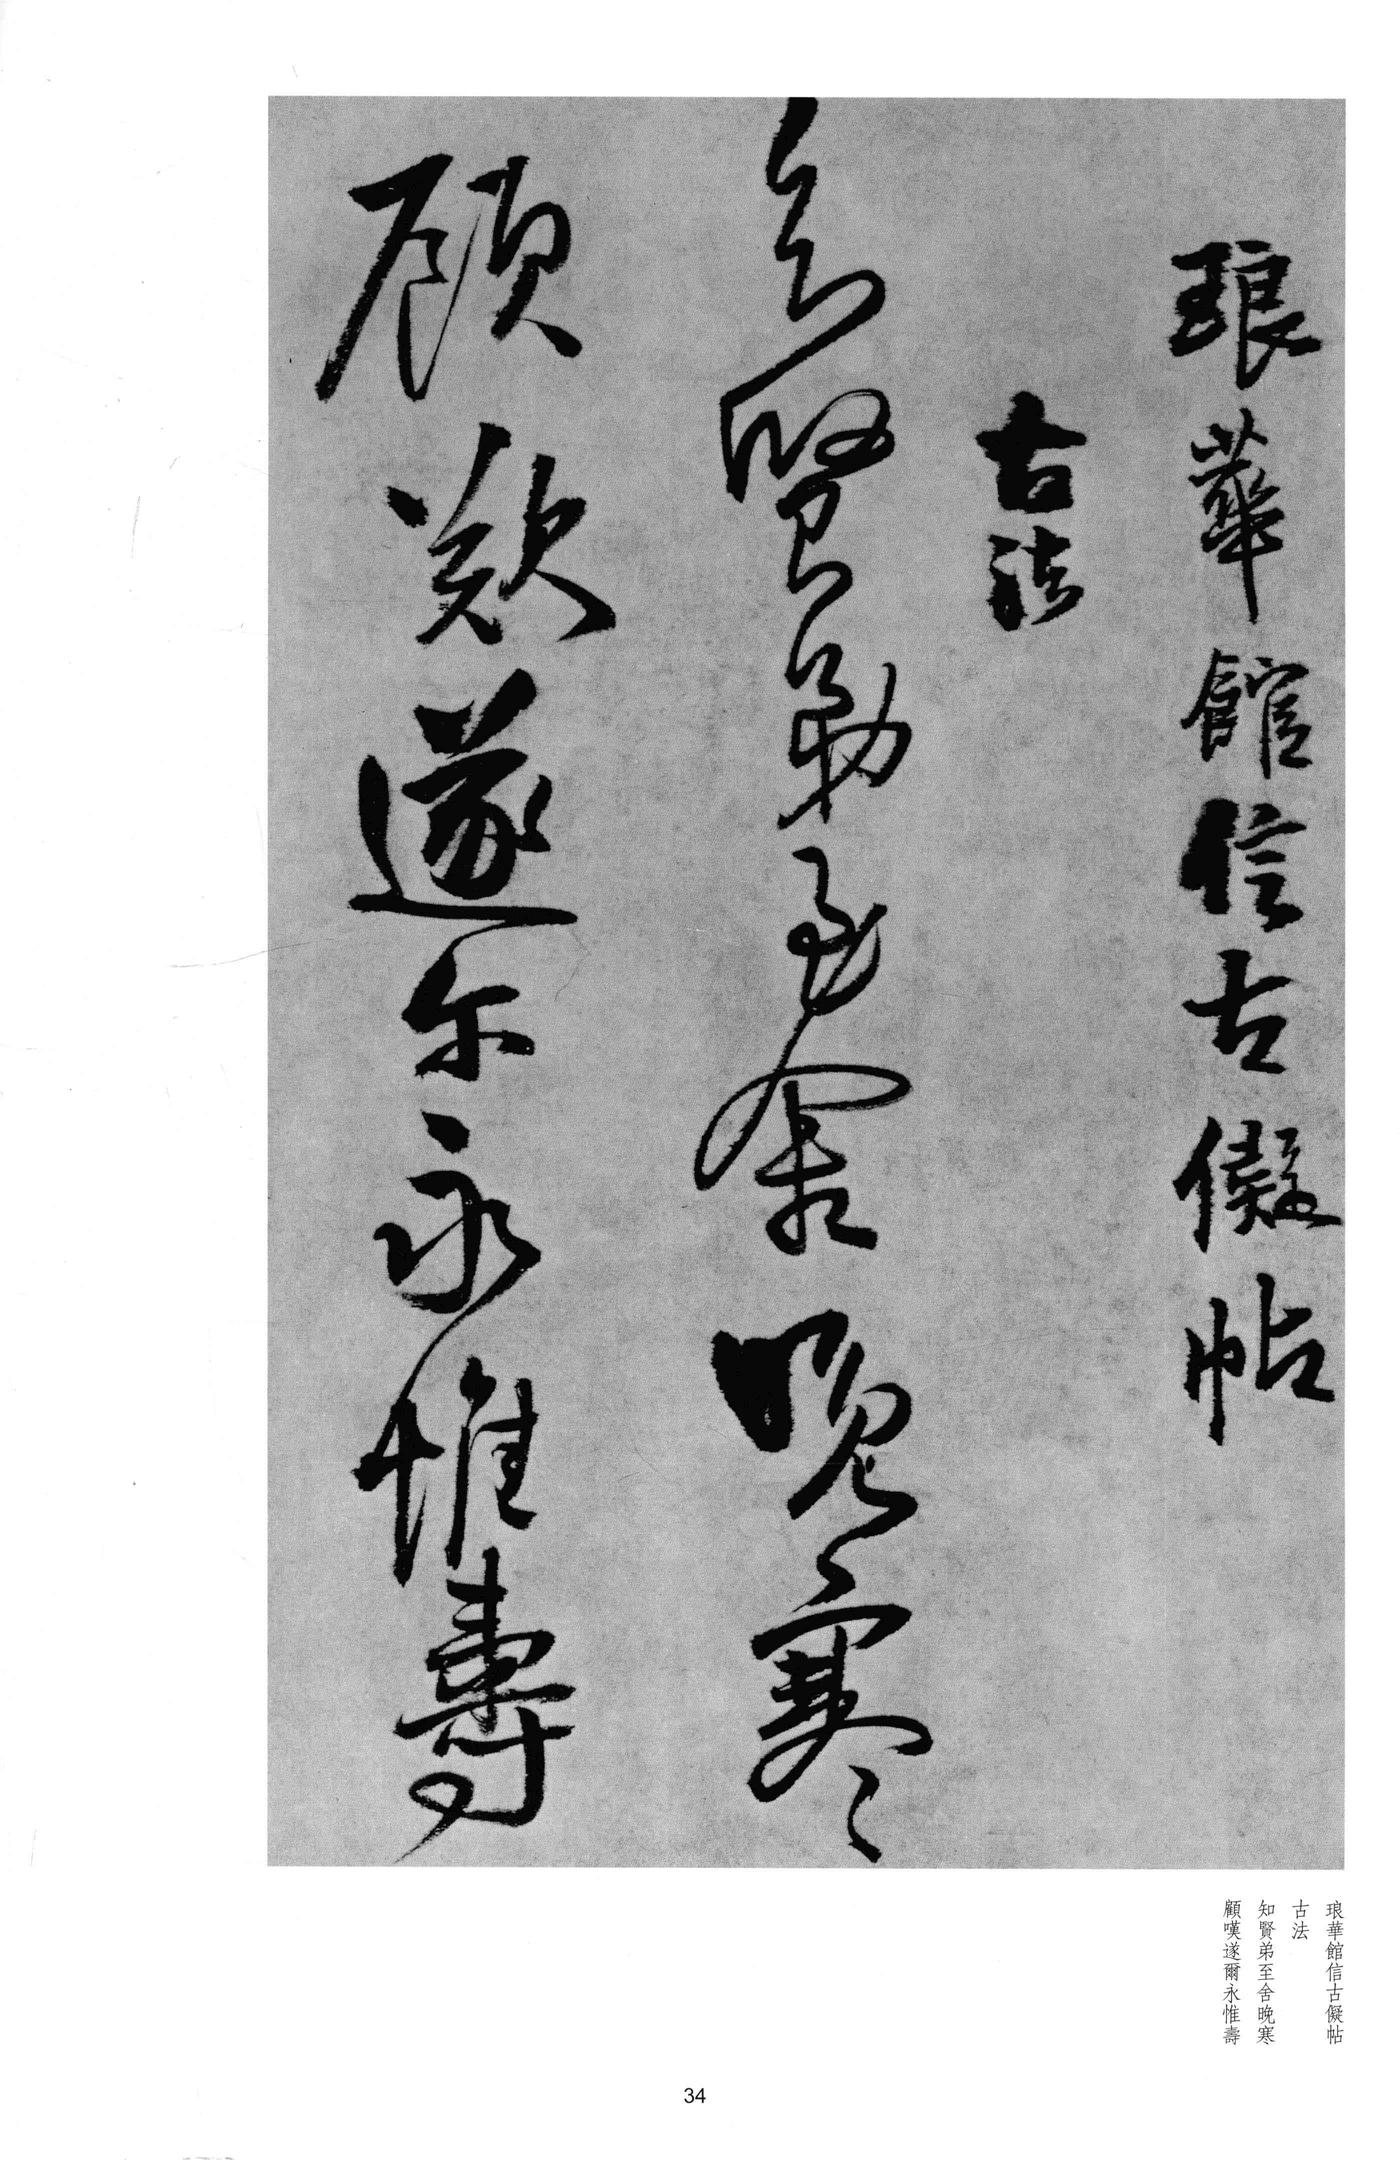 琅華館信古儗帖
古法
知賢弟至舍晚寒
顧歎遂尓永惟壽
琅華館信古儗帖
古法
知賢弟至舍晚寒
顧嘆遂爾永惟壽
34